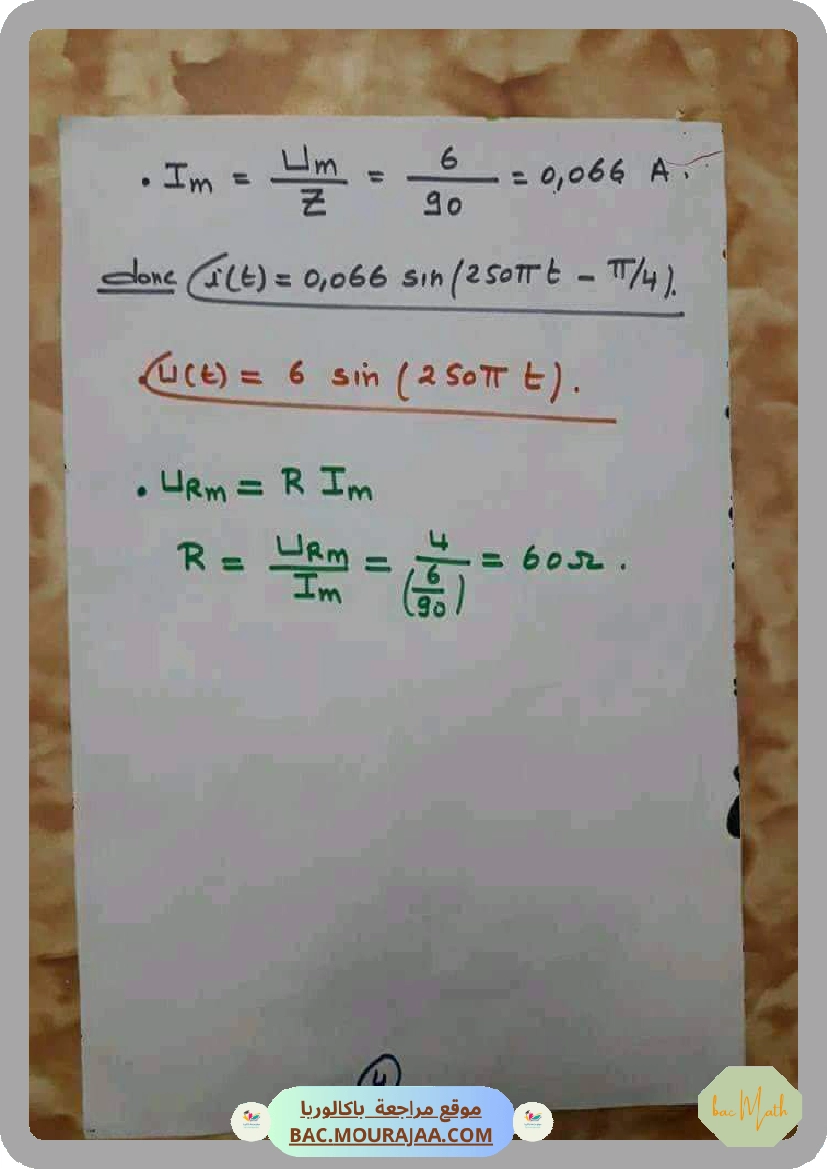 . Im = Um/Z = 6/90 = 0,066 A.
donc i(t) = 0,066 sin(250π t - π/4).
u(t) = 6 sin(250π t).
. URm = R Im
R = URm/Im = 4/(6/90) = 60 Ω.
4
موقع مراجعة باكالوريا
BAC.MOURAJAA.COM
bac Math